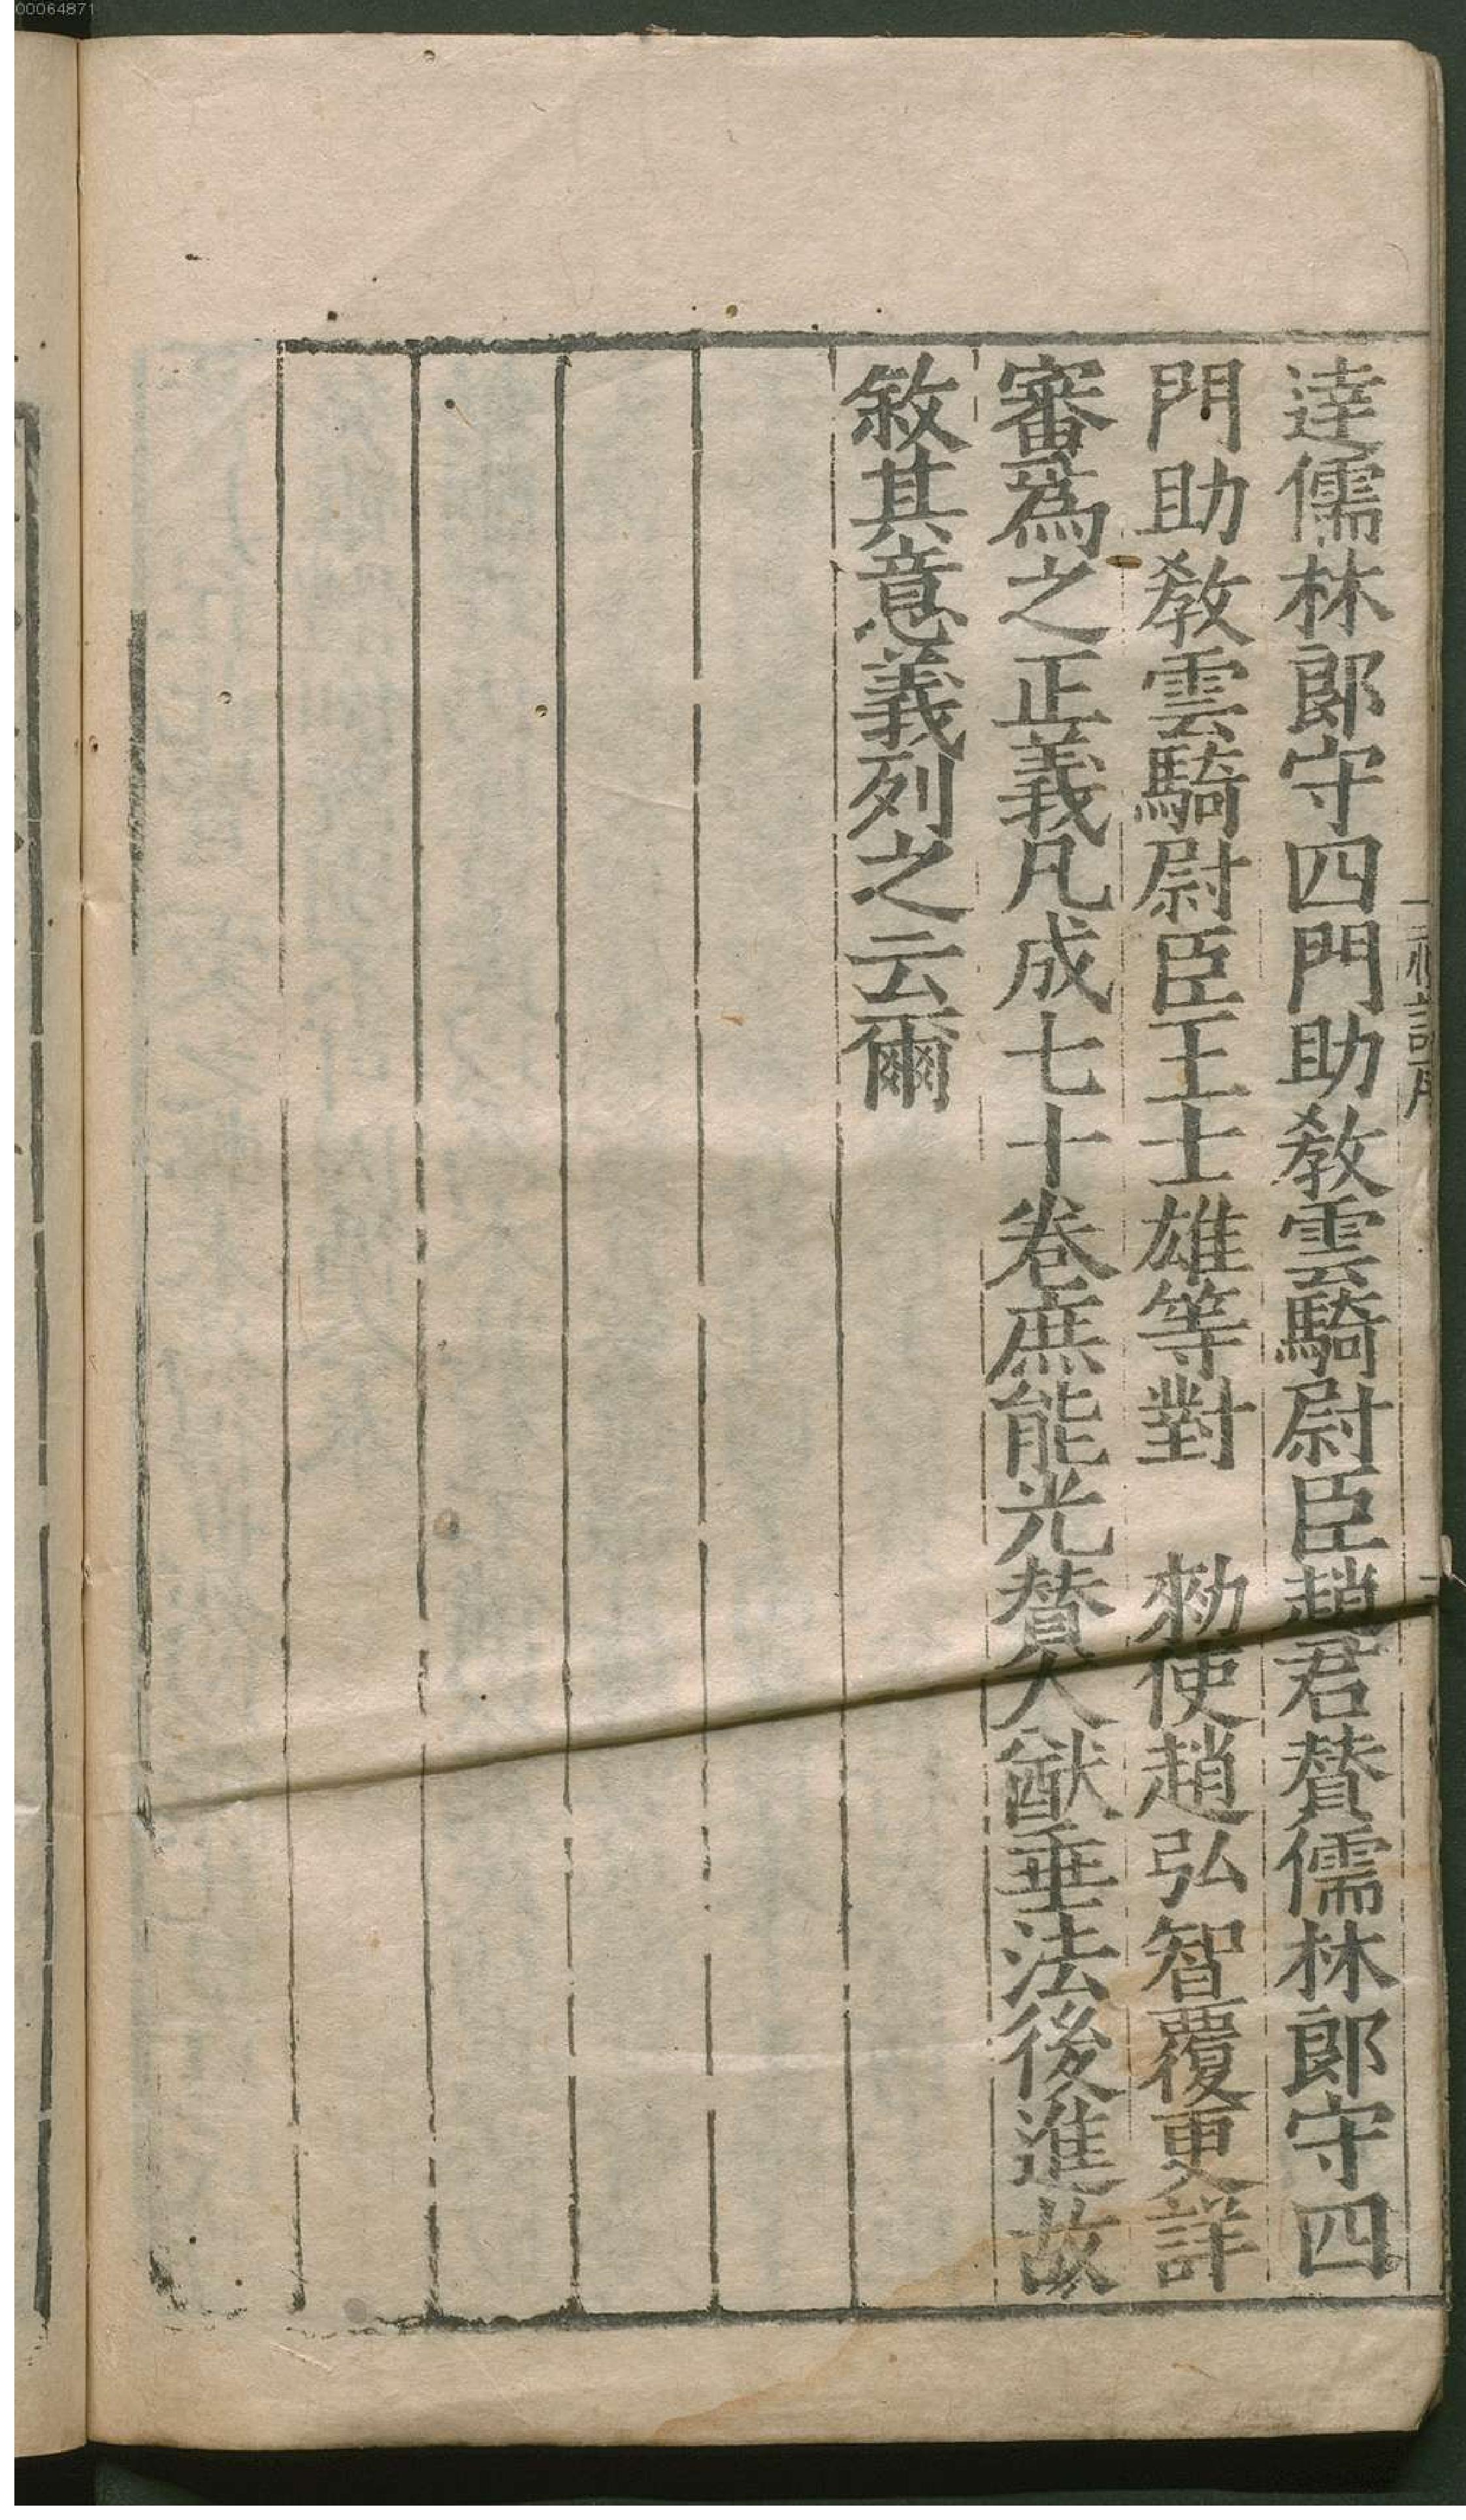 達儒林郎守四門助教雲騎尉臣趙君贊儒林郎守四
門助教雲騎尉臣王士雄等對　勑使趙弘智覆更詳
審為之正義凡成七十卷庶能光贊大猷垂法後進故
敘其意義列之云爾
00064871